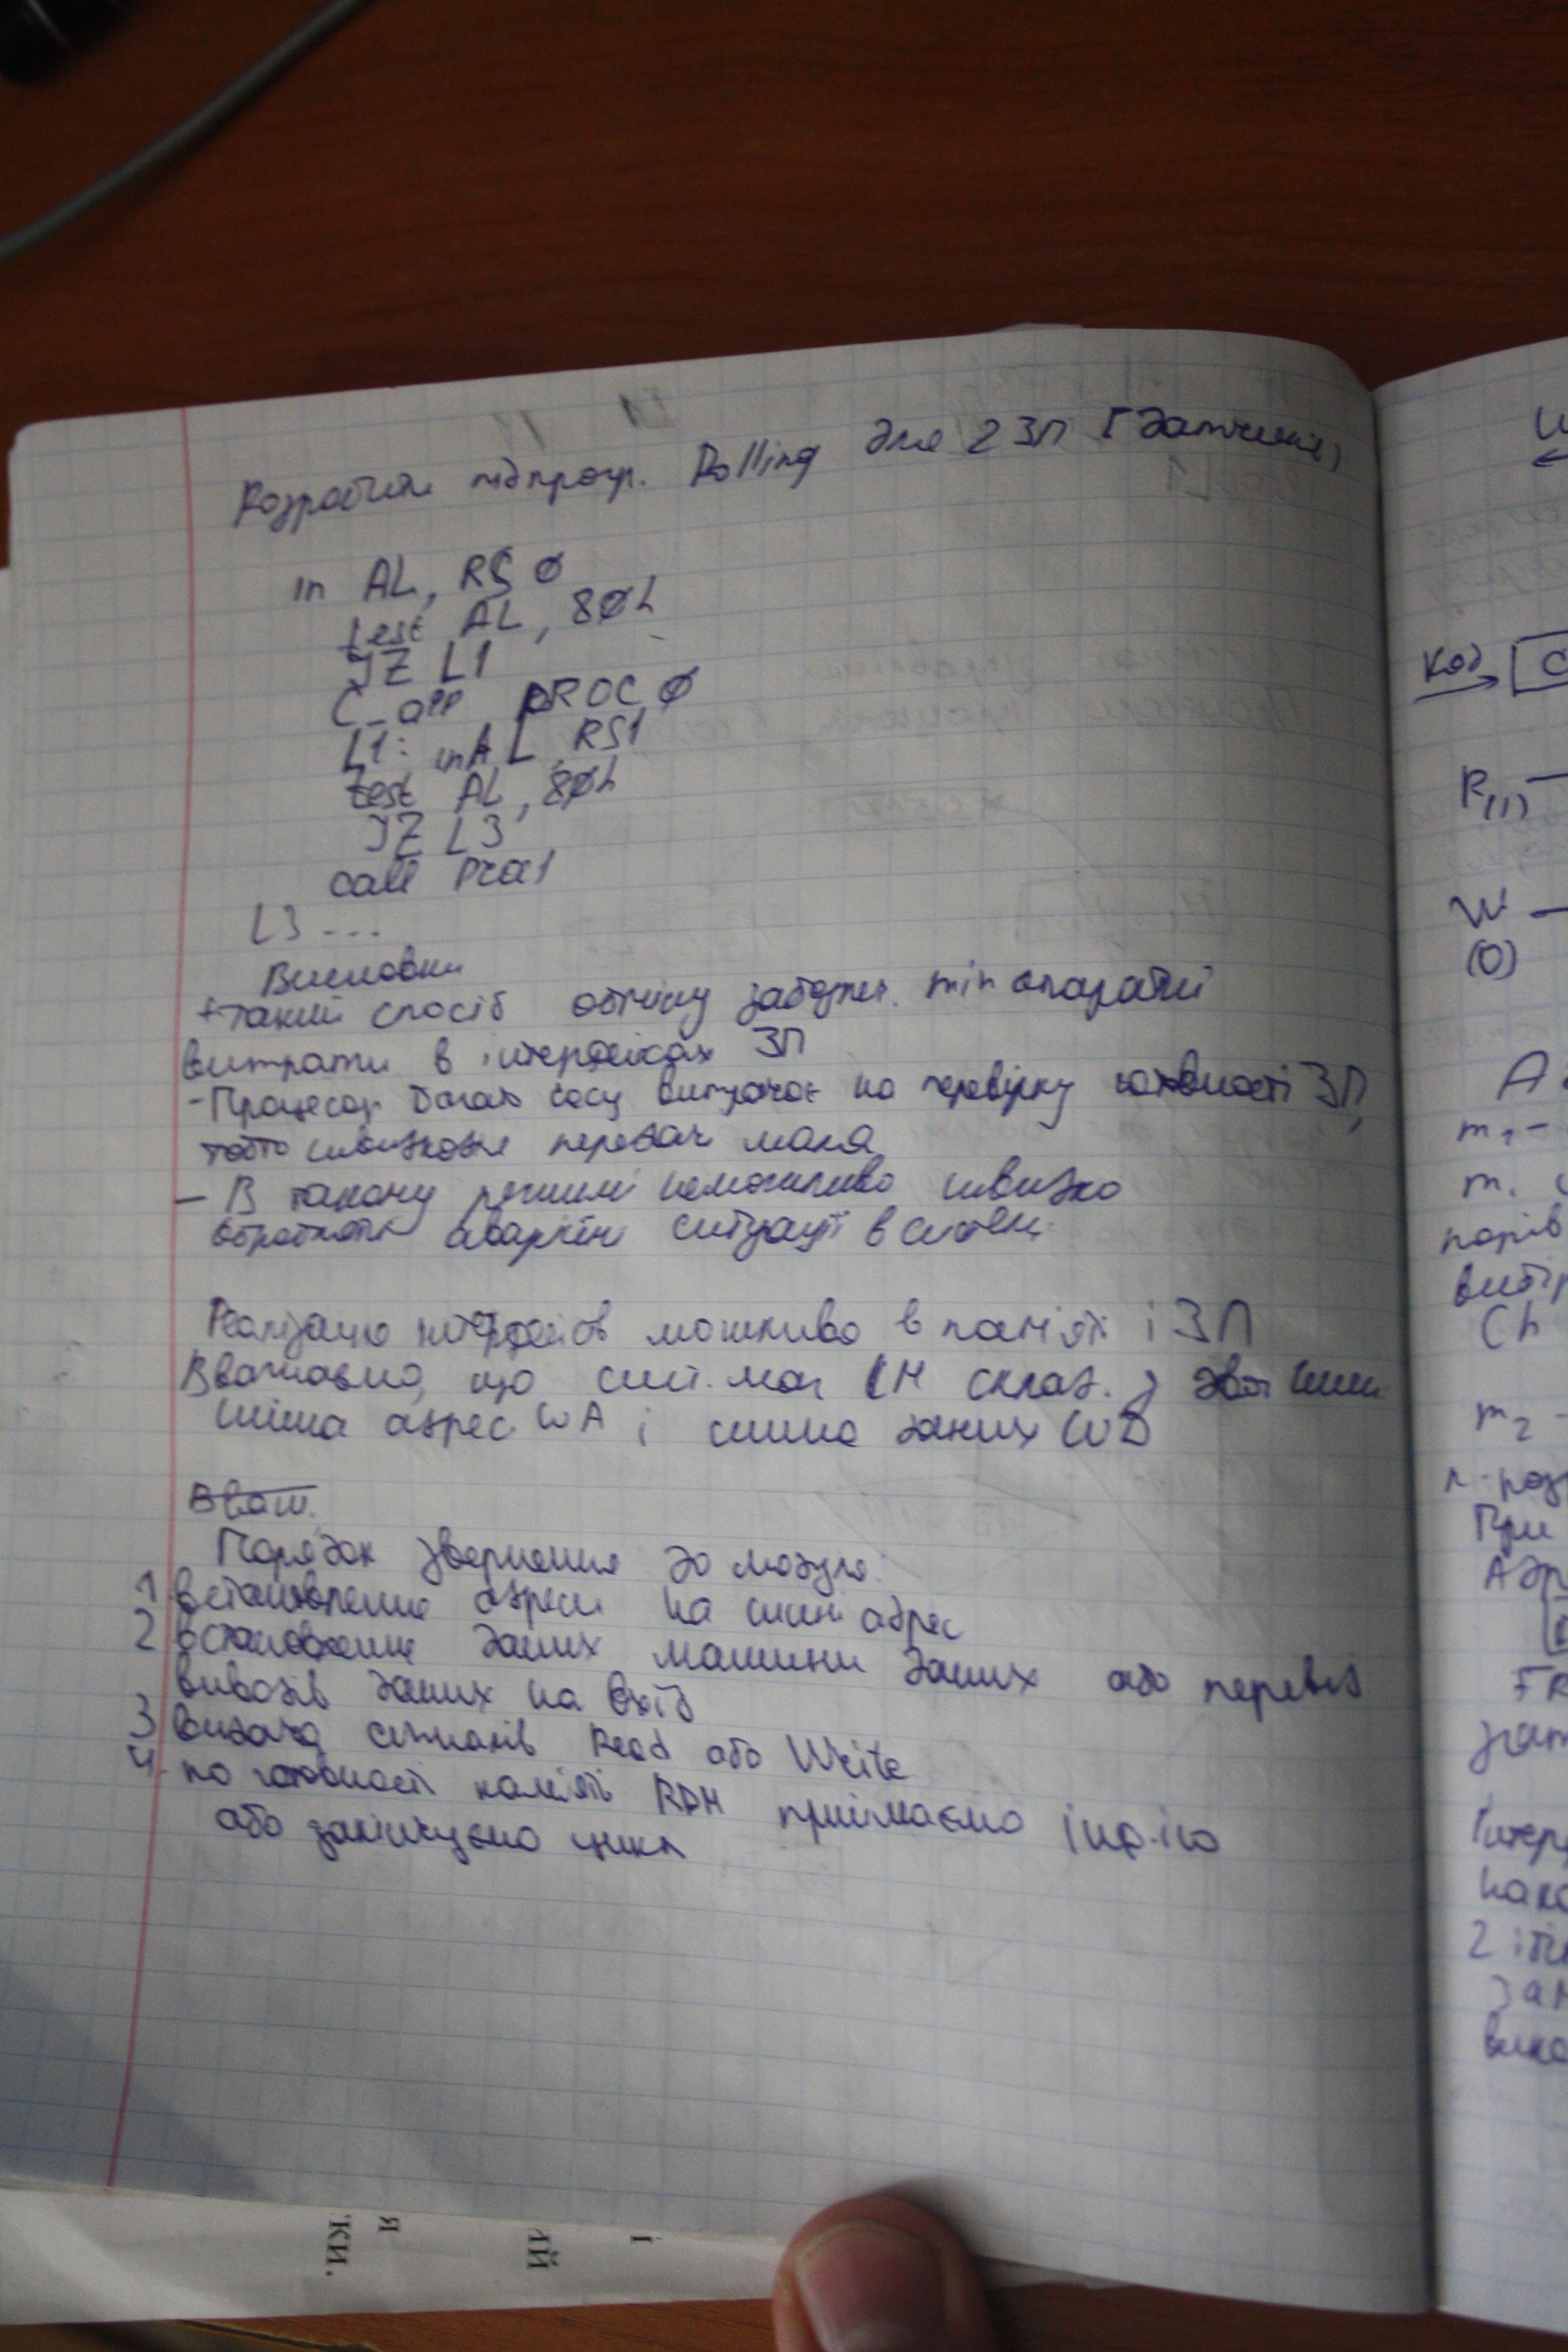 Розробити підпрогр. Polling для 2 ЗП
in AL, RS0
test AL, 80h
JZ L1
Call PROC0
L1: in AL, RS1
test AL, 80h
JZ L3
call Proc1
L3 ...
Висновки
+ такий спосіб обміну забезпеч. min апаратні
витрати в інтерфейсах ЗП
- Процесор багато часу витрачає на перевірку готовності ЗП,
тобто швидкодія передач мала
- В такому режимі неможливо швидко
обробляти аварійні ситуації в системі
Реалізацію інтерфейсів можливо в пам'яті і ЗП
Вважаємо, що сист. маг СМ склад. з двох шин
шина адрес ША і шина даних ШД
Порядок звернення до модуля
1 встановлення адреси на шині адрес
2 встановлення даних машини даних або перевед
виводів даних на вхід
3 видача сигналів Read або Write
4. по готовності пам'яті RDM приймаємо інф-ію
або закінчуємо цикл
Код
R(1)
W
(0)
m2
При
ки.
я
ий
і